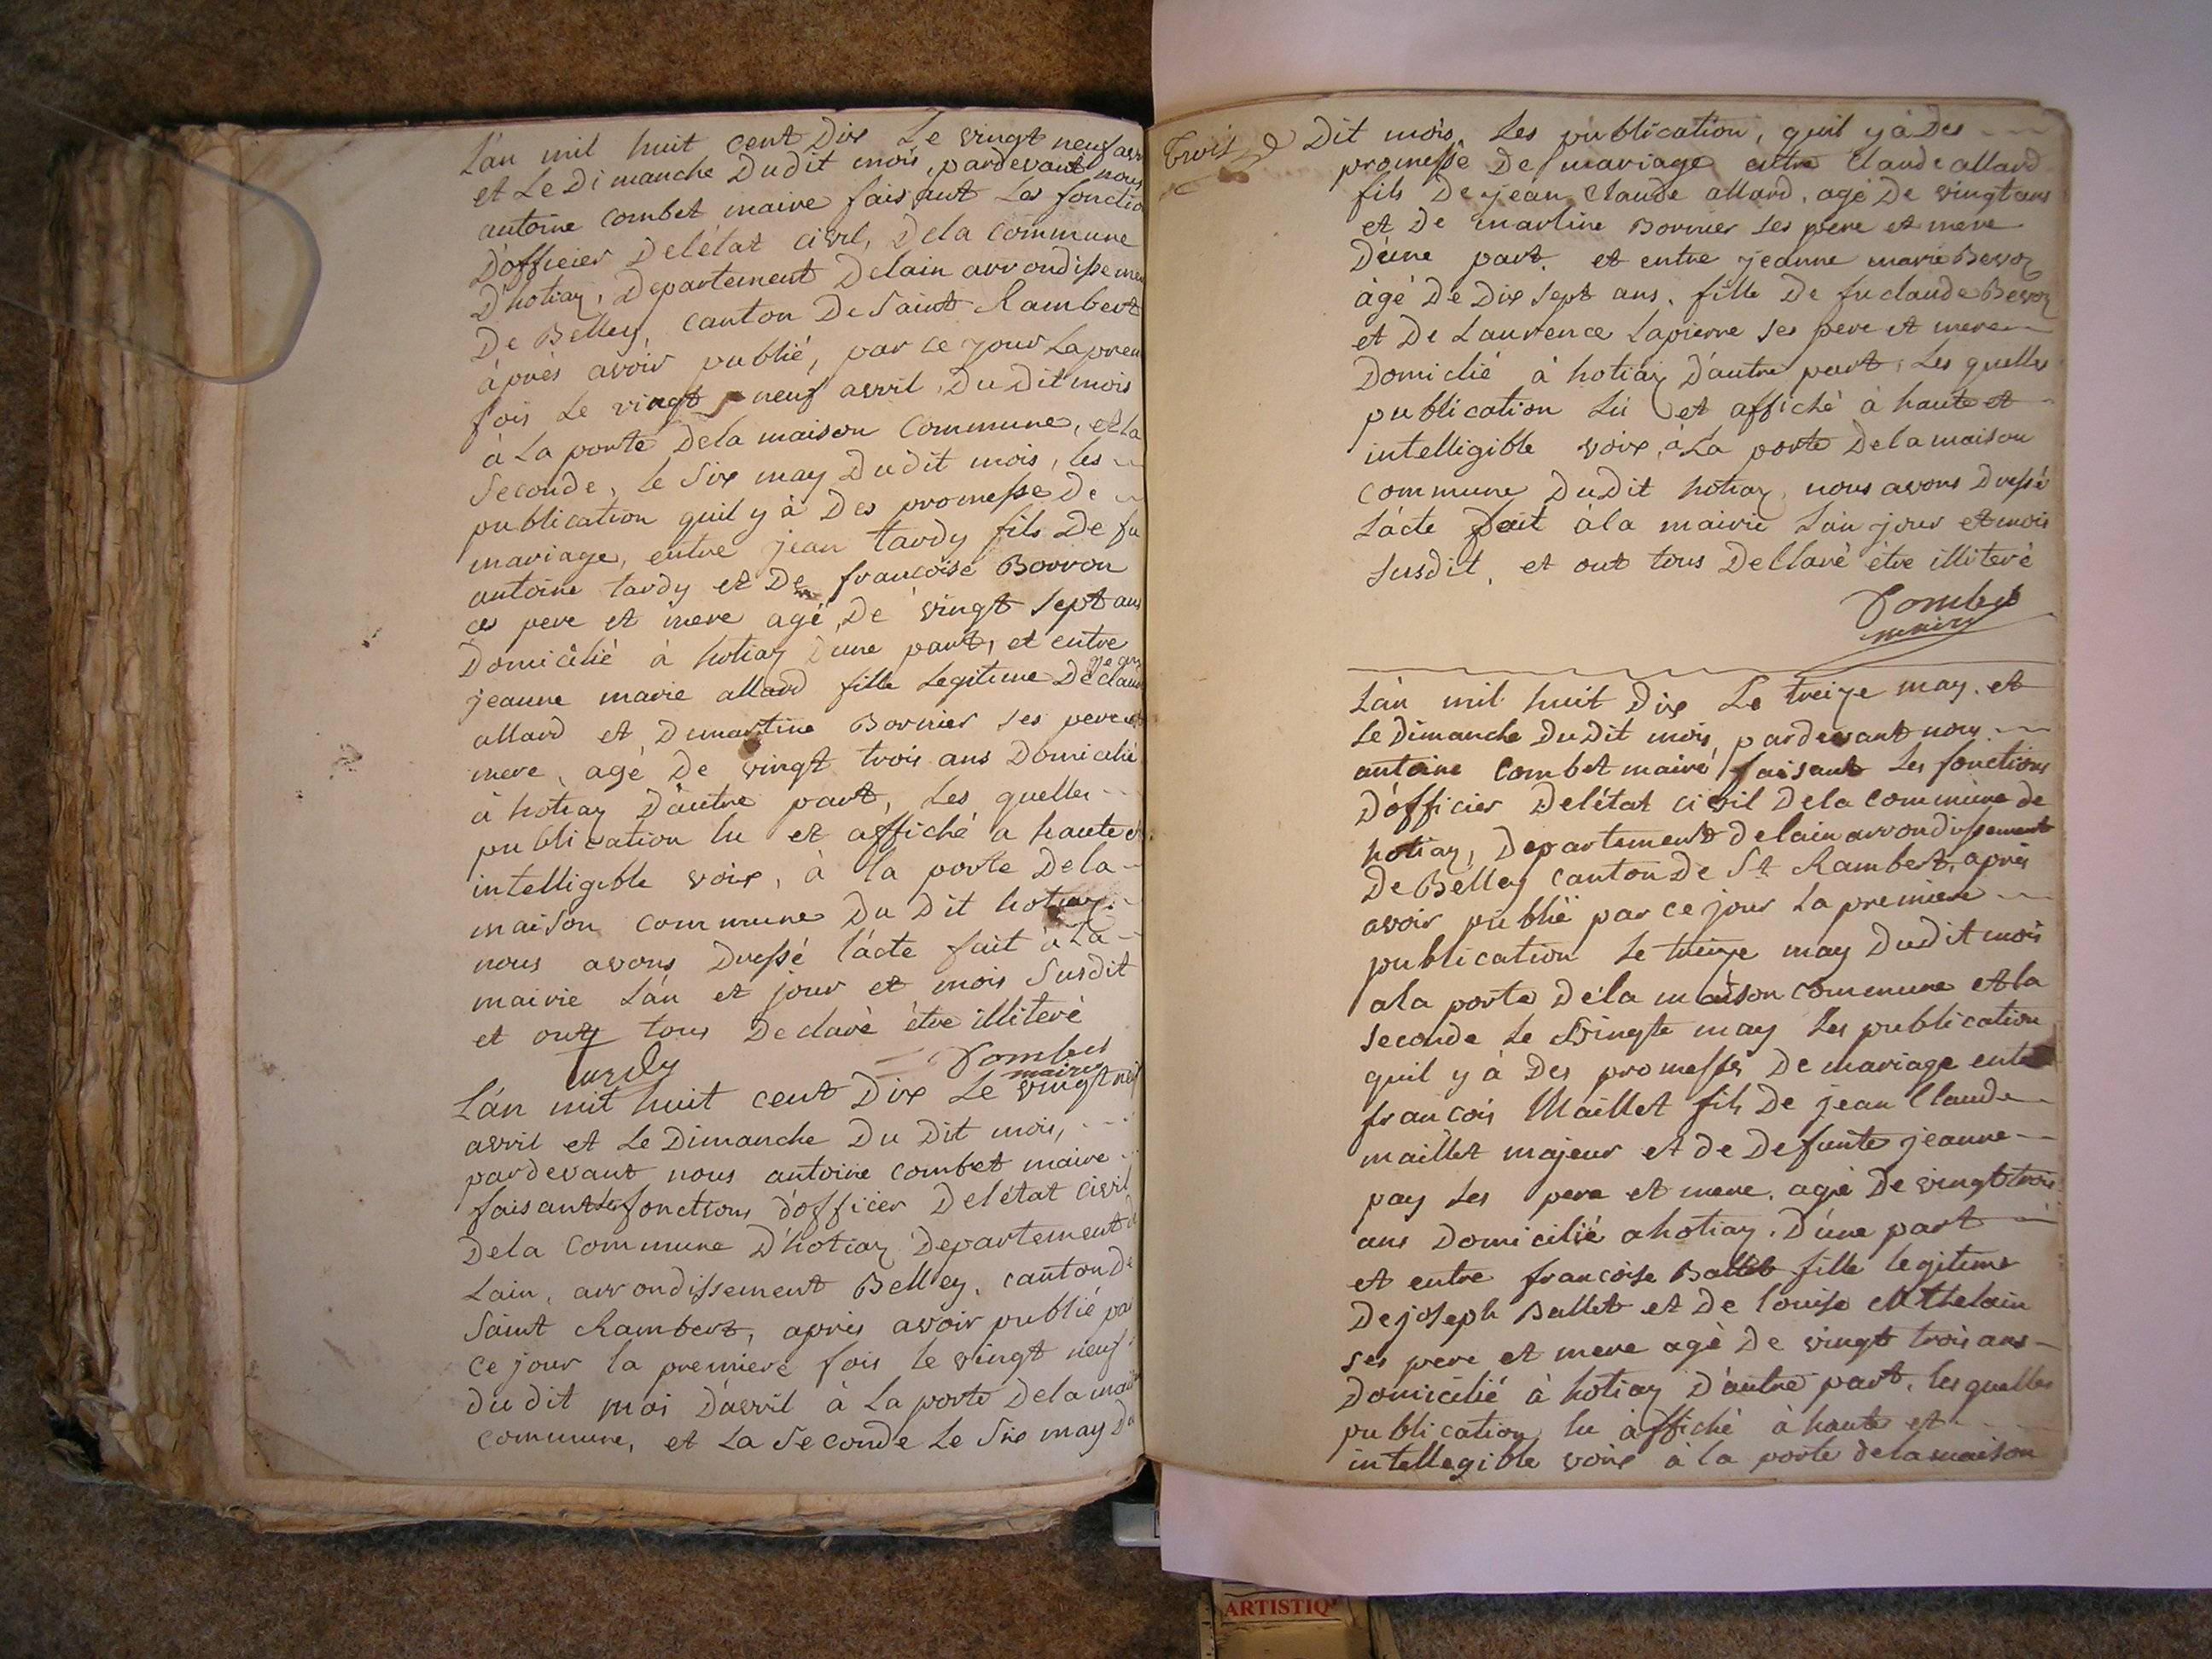 L'an mil huit cent Dix Le vingt neuf avr
et Le Dimanche Dudit mois, pardevant nous
antoine combet maire faisant Les fonctio
D'officier Delétat civil, Dela Commune
D'hotiaz, Departement Delain arrondissemen
De Belley, canton De Saint Rambert
àprès avoir publié, par ce jour Laprem
fois Le vingt neuf avril, Du Dit mois
à La porte Dela maison Commune, et la
Seconde, le Six may Dudit mois, les
publication quil y à Des promesse De
mariage, entre jean tardy fils De fu
antoine tardy et De francoise Borron
ces pere et mere agé De vingt Sept ans
Domicilié à hotiaz D'une part, et entre
jeanne marie allard fille Legitime De jean claude
allard et Demartine Bornier Ses pere et
mere, agé De vingt trois ans Domicilié
à hotiaz D'autre part, Les quelles
publication lu et affiché a haute et
intelligible voix, à la porte Dela
maison commune Du Dit hotiaz.
nous avons Dressé l'acte fait à La
mairie L'an et jour et mois Susdit
et ont tous Declaré étre illiteré
tardy Combet
maire
L'an mil huit cent Dix Le vingt neuf
avril et Le Dimanche Du Dit mois,
pardevant nous antoine combet maire
faisant Les fonctions d'officier Delétat Civil
Dela Commune D'hotiaz Departement de
Lain, arrondissement Belley, canton De
Saint Rambert, après avoir publié par
ce jour la premiere fois le vingt neuf
du dit moi D'avril à La porte Dela mais
commune, et La Seconde Le Six may Du
Trois
Dit mois, Les publication, quil y à Des
promesse De mariage entre Claude allard
fils De jean Claude allard, agé De vingt ans
et De martine Bornier Ses pere et mere
D'une part, et entre jeanne marie Bevoz
àgé De Dix Sept ans, fille De fu claude Bevoz
et De Laurence Lapierre Ses pere et mere
Domiclié à hotiaz D'autre part, Les quelles
publication Lu et affiché à haute et
intelligible voix, à La porte Dela maison
commune DuDit hotiaz, nous avons Dressé
L'acte fait àla mairie L'an jour et mois
Susdit, et ont tous Dellaré étre illiteré
Combet
maire
L'an mil huit Dix Le treize may. et
Le Dimanche DuDit mois, pardevant nous
antoine Combet maire faisant Les fonctions
D'officier Delétat civil Dela Commune de
hotiaz, Departement delain arrondissement
De Belley Canton De St Rambert, après
avoir publié par ce jour La premiere
publication Le treize may Dudit mois
ala porte Déla maison Commune et la
seconde Le vingte may Les publication
quil y à Des promesses De mariage entre
francois Maillet fils De jean Claude
maillet majeur et de Defunte jeanne
pay Ses pere et mere, agé De vingt trois
ans Domicilié ahotiaz. D'une part
et entre francoise Ballet fille legitime
De joseph Ballet et De louise Athelain
ses pere et mere agé De vingt trois ans
Domicilié à hotiaz D'autre part, les quelles
publication, lu affiché à haute et
intellegible voix à la porte dela maison
ARTISTIQ